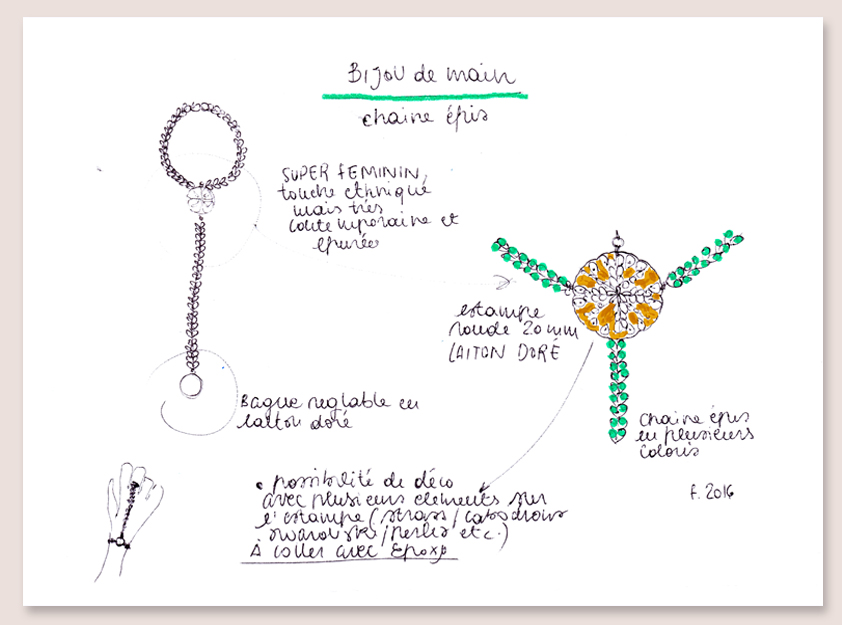 BIJOU de main
chaine épis
SUPER FEMININ,
touche ethnique
mais très
contemporaine et
épurée
estampe
ronde 20 mm
LAITON DORÉ
Bague reglable en
laiton doré
chaine épis
en plusieurs
coloris
f. 2016
• possibilité de déco
avec plusieurs elements sur
l'estampe (strass / cabochons
swarovski / perles etc.)
À coller avec Epoxy